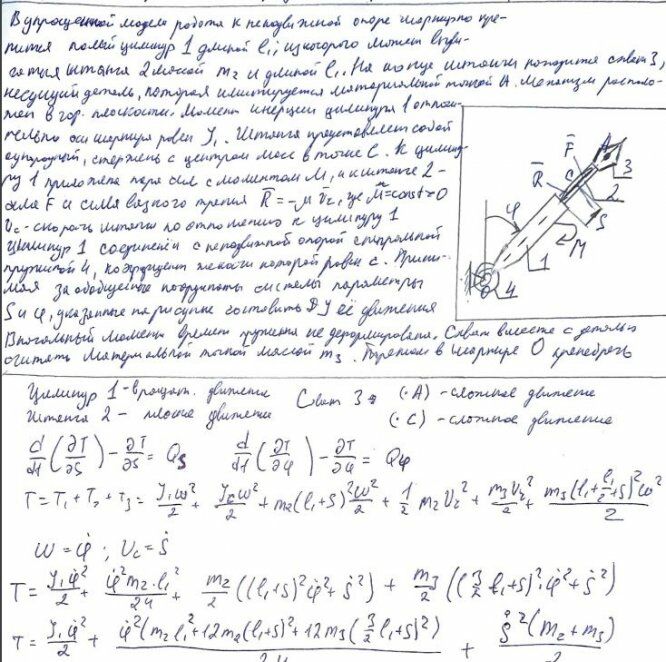 В упрощенной модели робота к неподвижной опоре шарнирно кре-
пится полый цилиндр 1 длиной l₁; из которого может выдви-
гаться штанга 2 массой m₂ и длиной l₁. На конце штанги находится схват 3,
несущий деталь, которая имитируется материальной точкой А. Механизм располо-
жен в гор. плоскости. Момент инерции цилиндра 1 относи-
тельно оси шарнира равен J₁. Штанга представляет собой
однородный, стержень с центром масс в точке C. К цилинд-
ру 1 приложена пара сил с моментом M, а к штанге 2-
сила F и сила вязкого трения R̅ = -μ V̅r, где μ=const>0
Vr - скорость штанги по отношению к цилиндру 1
Цилиндр 1 соединен с неподвижной опорой спиральной
пружиной 4, коэффициент жесткости которой равен c. Прини-
мая за обобщенные координаты системы параметры
S и φ, указанные на рисунке составить ДУ её движения
В начальный момент времени пружина не деформирована. Схват вместе с деталью
считать материальной точкой массой m₃. Трением в шарнире O пренебречь
A
F̅
C
3
R̅
2
φ
S
M
1
O
4
Цилиндр 1 - вращат. движение
Штанга 2 - плоское движение
Схват 3 → (·A) - сложное движение
(·C) - сложное движение
d/dt (∂T/∂Ṡ) - ∂T/∂S = Qs   d/dt (∂T/∂φ̇) - ∂T/∂φ = Qφ
T = T₁ + T₂ + T₃ = J₁ω²/2 + Jcω²/2 + m₂(l₁+S)²ω²/2 + 1/2 m₂Vr² + m₃Vr²/2 + m₃(l₁+l₁/2+S)²ω²/2
ω = φ̇ ; Vr = Ṡ
T = J₁φ̇²/2 + φ̇²m₂·l₁²/24 + m₂/2 ((l₁+S)²φ̇² + Ṡ²) + m₃/2 ((3/2 l₁+S)²·φ̇² + Ṡ²)
T = J₁φ̇²/2 + φ̇²(m₂l₁²+12m₂(l₁+S)²+12m₃(3/2 l₁+S)²)/24 + Ṡ²(m₂+m₃)/2